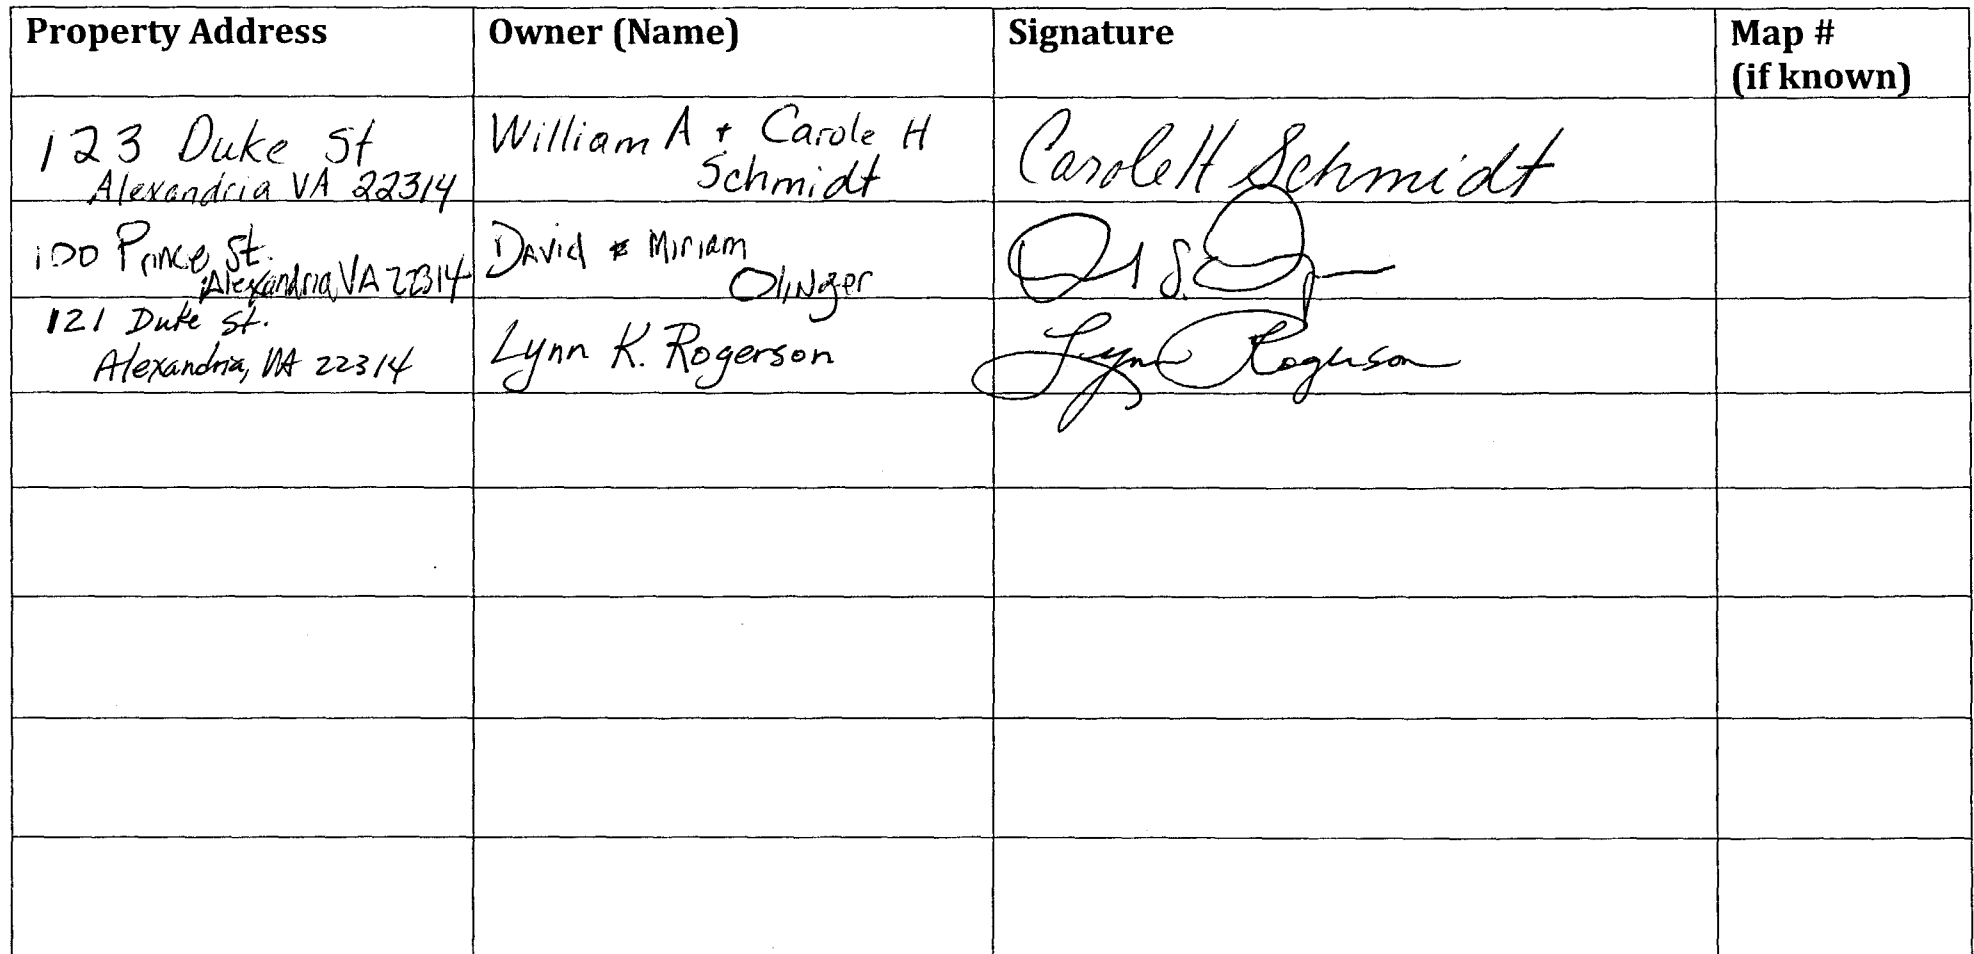 Property Address
Owner (Name)
Signature
Map #
(if known)
123 Duke St
Alexandria VA 22314
William A + Carole H
Schmidt
Carole H Schmidt
100 Prince St.
Alexandria, VA 22314
David & Miriam
Olinger
121 Duke St.
Alexandria, VA 22314
Lynn K. Rogerson
Lynn Rogerson